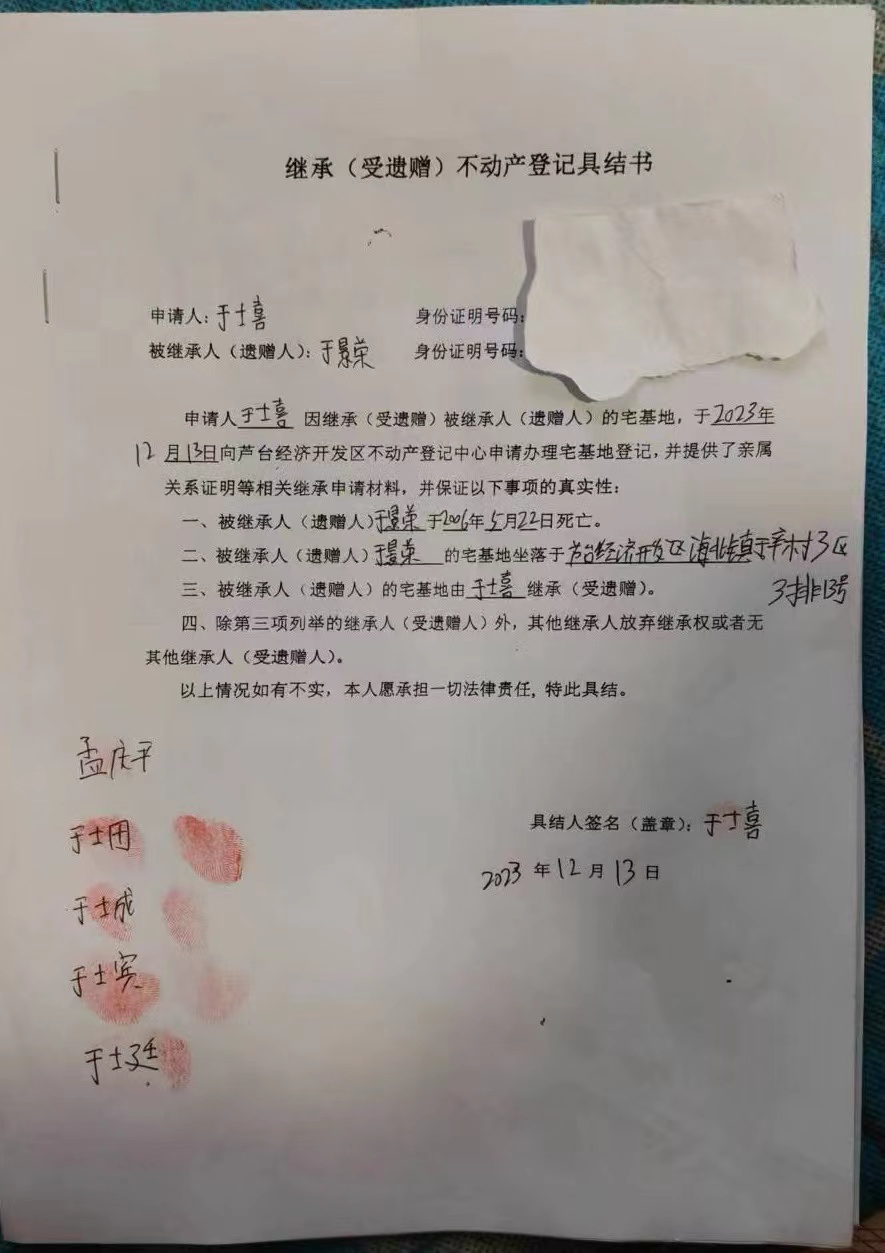 继承（受遗赠）不动产登记具结书
申请人：于士喜 身份证明号码：
被继承人（遗赠人）：于景荣 身份证明号码：
申请人于士喜因继承（受遗赠）被继承人（遗赠人）的宅基地，于2023年
12月13日向芦台经济开发区不动产登记中心申请办理宅基地登记，并提供了亲属
关系证明等相关继承申请材料，并保证以下事项的真实性：
一、被继承人（遗赠人）于景荣于2006年5月22日死亡。
二、被继承人（遗赠人）于景荣的宅基地坐落于芦台经济开发区海北镇于辛村3区
3排13号
三、被继承人（遗赠人）的宅基地由于士喜继承（受遗赠）。
四、除第三项列举的继承人（受遗赠人）外，其他继承人放弃继承权或者无
其他继承人（受遗赠人）。
以上情况如有不实，本人愿承担一切法律责任，特此具结。
孟庆平
具结人签名（盖章）：于士喜
于士田
2023年12月13日
于士成
于士宾
于士廷